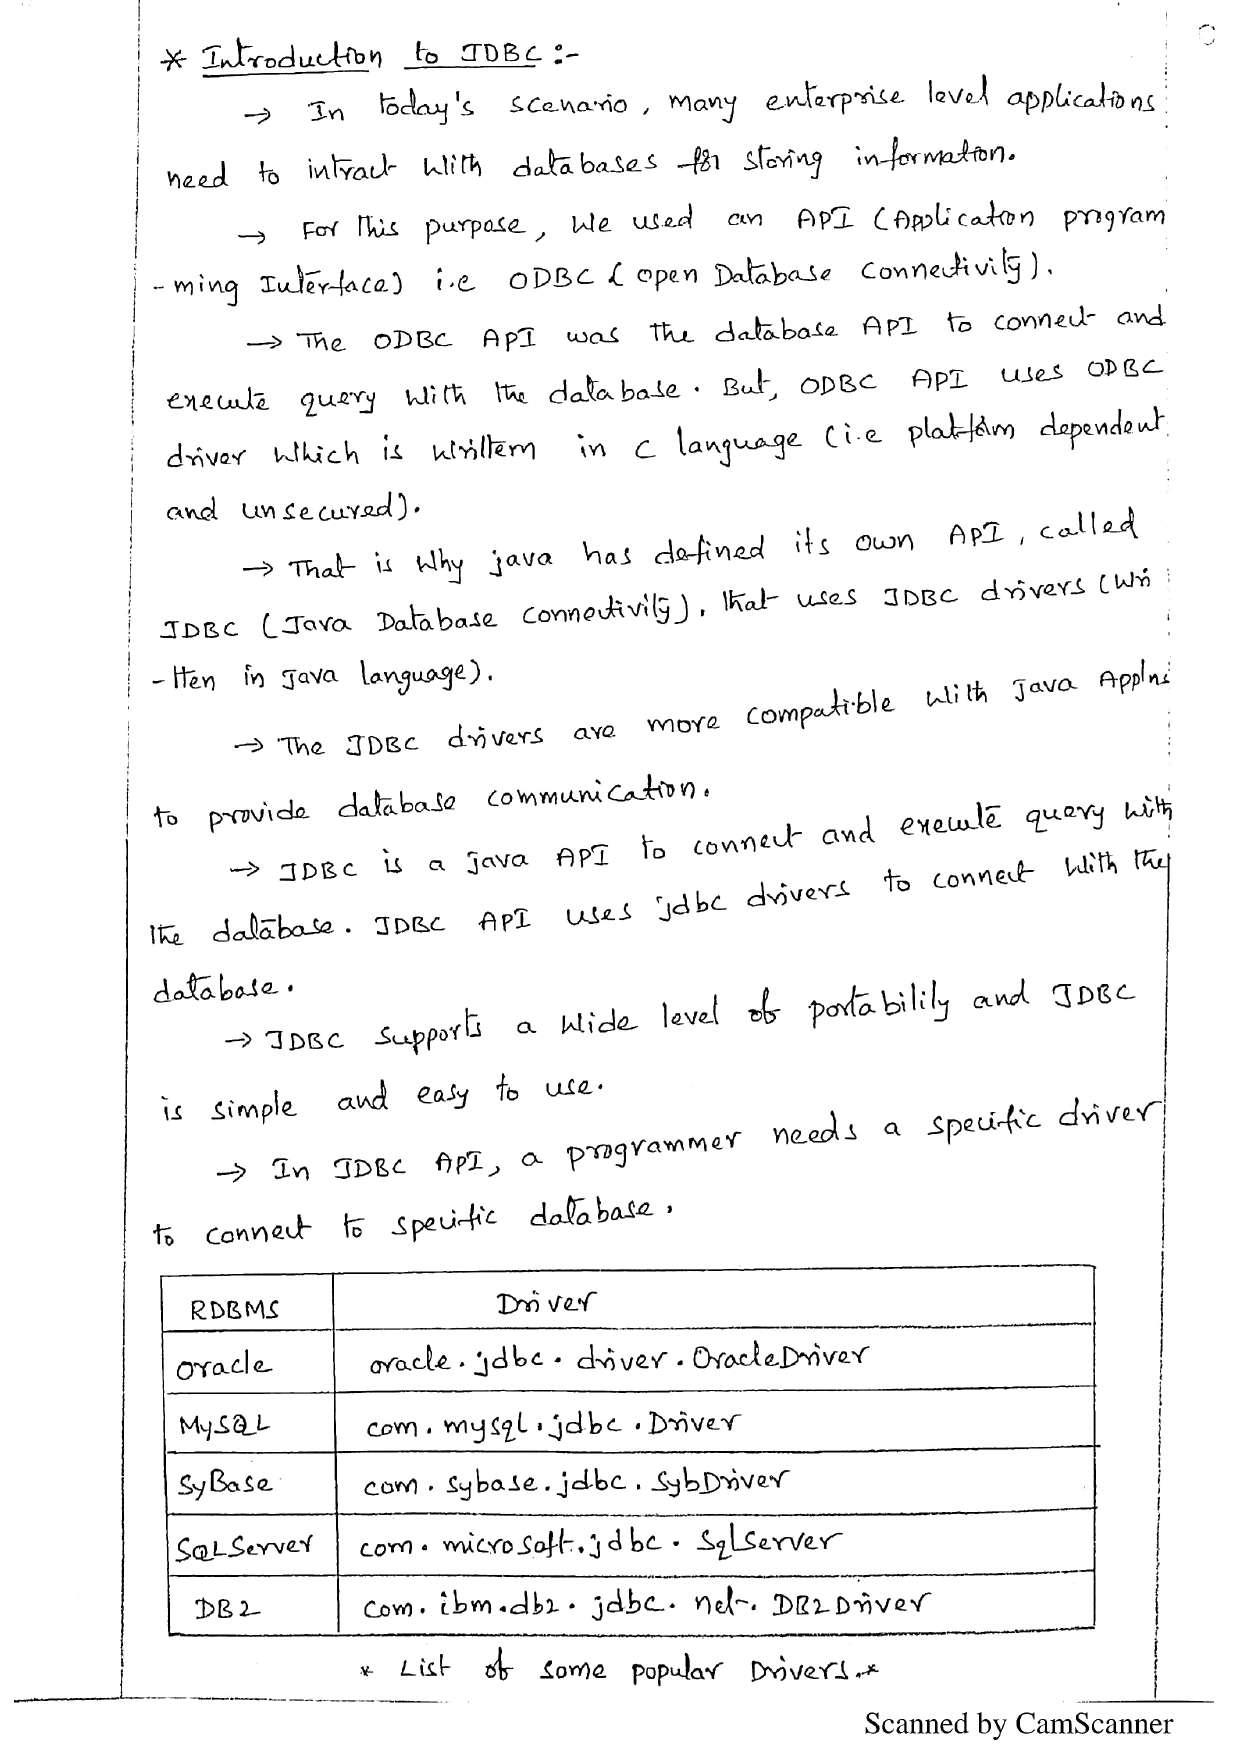 * Introduction to JDBC :-
→ In today's scenario, many enterprise level applications
need to intract with databases for storing information.
→ For this purpose, we used an API (Application program
-ming Interface) i.e ODBC (open Database connectivity).
→ The ODBC API was the database API to connect and
execute query with the database. But, ODBC API uses ODBC
driver which is writtem in c language (i.e platform dependent
and unsecured).
→ That is why java has defined its own API, called
JDBC (Java Database connectivity), that uses JDBC drivers (wri
-tten in Java language).
→ The JDBC drivers are more compatible with Java Applns
to provide database communication.
→ JDBC is a java API to connect and execute query with
the database. JDBC API uses jdbc drivers to connect with the
database.
→ JDBC supports a wide level of portability and JDBC
is simple and easy to use.
→ In JDBC API, a programmer needs a specific driver
to connect to specific database.
RDBMS Driver
oracle oracle.jdbc.driver.OracleDriver
MySQL com.mysql.jdbc.Driver
SyBase com.sybase.jdbc.SybDriver
SQLServer com.microsoft.jdbc.SqlServer
DB2 com.ibm.db2.jdbc.net.DB2Driver
* List of some popular Drivers.*
Scanned by CamScanner